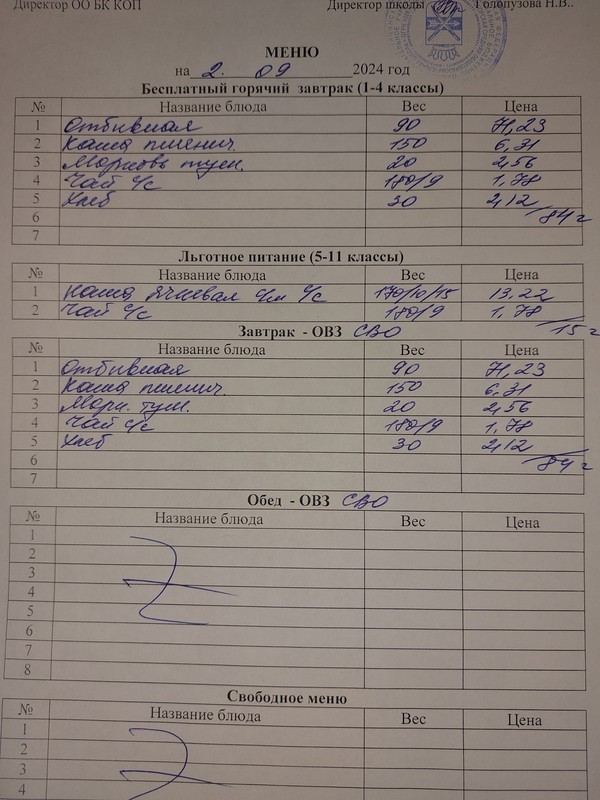 Директор ОО БК КОП Директор школы Голопузова Н.В..
МЕНЮ
на 2. 09 2024 год
Бесплатный горячий завтрак (1-4 классы)
№ Название блюда Вес Цена
1 Отбивная 90 71,23
2 Каша пшенич. 150 6,31
3 Морковь туш. 20 2,56
4 Чай с/с 180/9 1,78
5 Хлеб 30 2,12
6 84 г
7
Льготное питание (5-11 классы)
№ Название блюда Вес Цена
1 Каша ячневая с/м с/с 170/10/15 13,22
2 Чай с/с 180/9 1,78
15 г
Завтрак - ОВЗ СВО
№ Название блюда Вес Цена
1 Отбивная 90 71,23
2 Каша пшенич. 150 6,31
3 Морк. туш. 20 2,56
4 Чай с/с 180/9 1,78
5 Хлеб 30 2,12
6 84 г
7
Обед - ОВЗ СВО
№ Название блюда Вес Цена
1
2
3
4
5
6
7
8
Свободное меню
№ Название блюда Вес Цена
1
2
3
4